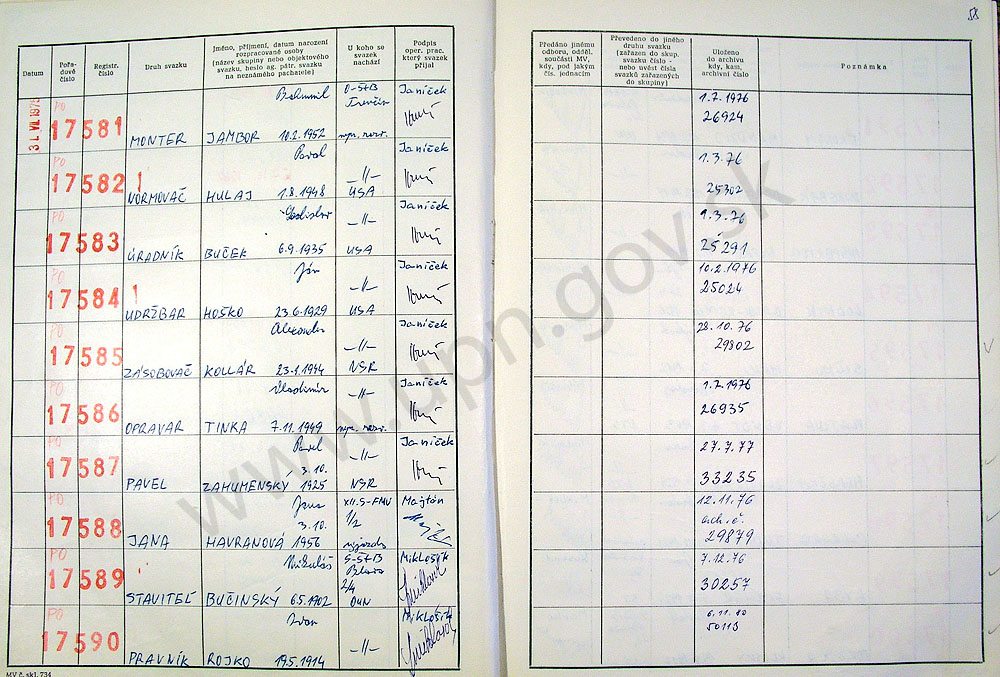 58
Datum
Pořadové číslo
Registr. číslo
Druh svazku
Jméno, příjmení, datum narození rozpracované osoby
(název skupiny nebo objektového svazku, heslo ag. pátr. svazku na neznámého pachatele)
U koho se svazek nachází
Podpis oper. prac. který svazek přijal
Předáno jinému odboru, odděl. součásti MV, kdy, pod jakým čís. jednacím
Převedeno do jiného druhu svazku (zařazen do skup. svazku číslo - nebo uvést čísla svazků zařazených do skupiny)
Uloženo do archivu kdy, kam, archivní číslo
Poznámka
31. VII. 1975
PO 17581 MONTER JAMBOR Bohumil 10.2.1952 Trenčín Janíček 1.7.1976 26924
PO 17582 NORMOVAČ HULAJ Pavol 1.8.1948 -//- USA Janíček 1.3.76 25302
PO 17583 ÚRADNÍK BUČEK 6.9.1935 -//- USA Janíček 1.3.76 25291
PO 17584 UDRŽBAR HOŠKO Ján 23.6.1929 -//- USA Janíček 10.2.1976 25024
PO 17585 ZÁSOBOVAČ KOLLÁR Alexander 23.1.1944 -//- NSR Janíček 28.10.76 29802
PO 17586 OPRAVAR TINKA Vladimír 7.11.1949 -//- Janíček 1.7.1976 26935
PO 17587 PAVEL ZAHUMENSKÝ Pavel 3.10.1925 -//- NSR Janíček 27.7.77 33235
PO 17588 JANA HAVRANOVÁ Jana 3.10.1956 XII.S-FMV 1/2 Majtán 12.11.76 arch. č. 29879
PO 17589 STAVITEĽ BUČINSKÝ Mikuláš 6.5.1902 S-ŠtB 2/4 Miklošík 7.12.76 30257
PO 17590 PRAVNÍK ROJKO Ivan 19.5.1914 -//- Miklošík 6.11.80 50113
MV č. skl. 734
www.upn.gov.sk